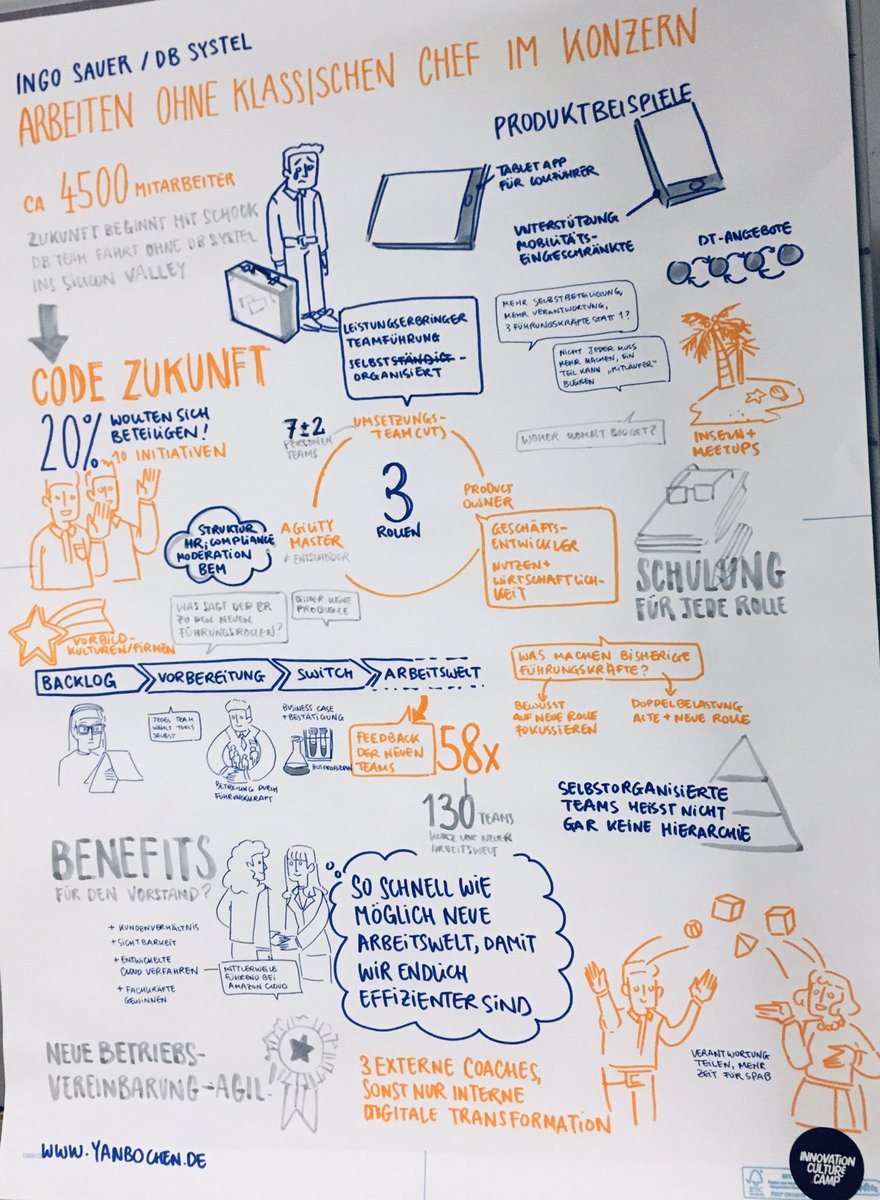 INGO SAUER / DB SYSTEL
ARBEITEN OHNE KLASSISCHEN CHEF IM KONZERN
CA 4500 MITARBEITER
ZUKUNFT BEGINNT MIT SCHOCK
DB TEAM FÄHRT OHNE DB SYSTEL
INS SILICON VALLEY
PRODUKTBEISPIELE
TABLET APP
FÜR LOKFÜHRER
UNTERSTÜTZUNG
MOBILITÄTS-
EINGESCHRÄNKTE
DT-ANGEBOTE
CODE ZUKUNFT
20% WOLLTEN SICH
BETEILIGEN!
10 INITIATIVEN
LEISTUNGSERBRINGER
TEAMFÜHRUNG
SELBSTSTÄNDIGT-
ORGANISIERT
MEHR SELBSTBETEILIGUNG,
MEHR VERANTWORTUNG,
3 FÜHRUNGSKRÄFTE STATT 1?
NICHT JEDER MUSS
MEHR MACHEN, EIN
TEIL KANN „MITLÄUFER"
BLEIBEN
WOHER KOMMT BUDGET?
INSELN+
MEETUPS
7±2
PERSONEN
TEAMS
UMSETZUNGS-
TEAM (UT)
3
ROLLEN
PRODUCT
OWNER
GESCHÄFTS-
ENTWICKLER
NUTZEN+
WIRTSCHAFTLICH-
KEIT
AGILITY
MASTER
≠ ENTSCHEIDER
STRUKTUR
HR, COMPLIANCE
MODERATION
BEM
SCHULUNG
FÜR JEDE ROLLE
VORBILD-
KULTUREN/FIRMEN
WAS SAGT DER BR
ZU DEN NEUEN
FÜHRUNGSROLLEN?
BISHER KEINE
PROBLEME
BACKLOG
VORBEREITUNG
SWITCH
ARBEITSWELT
WAS MACHEN BISHERIGE
FÜHRUNGSKRÄFTE?
BEWUSST
AUF NEUE ROLLE
FOKUSSIEREN
DOPPELBELASTUNG
ALTE + NEUE ROLLE
JEDES TEAM
WÄHLT TOOLS
SELBST
BETREUUNG DURCH
FÜHRUNGSKRAFT
BUSINESS CASE
+ BESTÄTIGUNG
AUSPROBIEREN
FEEDBACK
DER NEUEN
TEAMS
58x
130 TEAMS
KURZ VOR NEUER
ARBEITSWELT
SELBSTORGANISIERTE
TEAMS HEISST NICHT
GAR KEINE HIERARCHIE
BENEFITS
FÜR DEN VORSTAND?
+ KUNDENVERHÄLTNIS
+ SICHTBARKEIT
+ ENTWICKELTE
CLOUD VERFAHREN
+ FACHKRÄFTE
GEWINNEN
MITTLERWEILE
FÜHREND BEI
AMAZON CLOUD
SO SCHNELL WIE
MÖGLICH NEUE
ARBEITSWELT, DAMIT
WIR ENDLICH
EFFIZIENTER SIND
NEUE BETRIEBS-
VEREINBARUNG → AGIL!
3 EXTERNE COACHES,
SONST NUR INTERNE
DIGITALE TRANSFORMATION
VERANTWORTUNG
TEILEN, MEHR
ZEIT FÜR SPAß
WWW.YANBOCHEN.DE
INNOVATION
CULTURE
CAMP